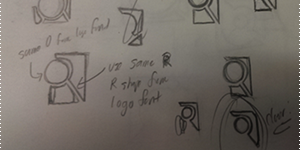 same O from logo font
use same R
R shop from
logo font
door